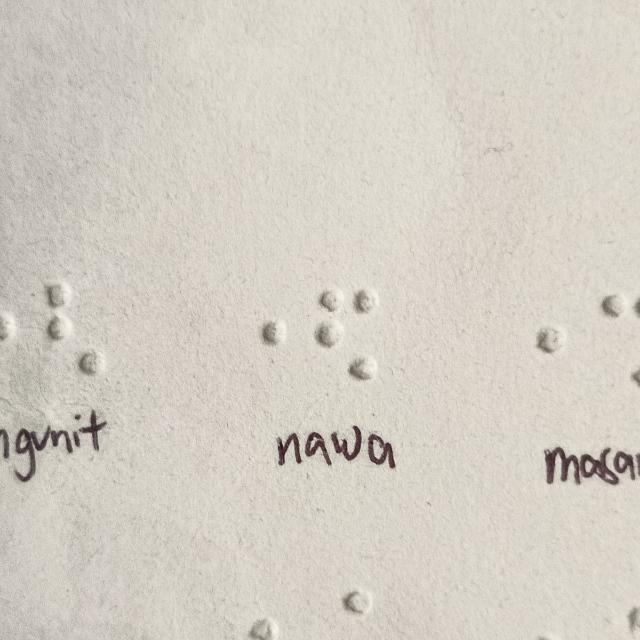 ngunit nawa masa